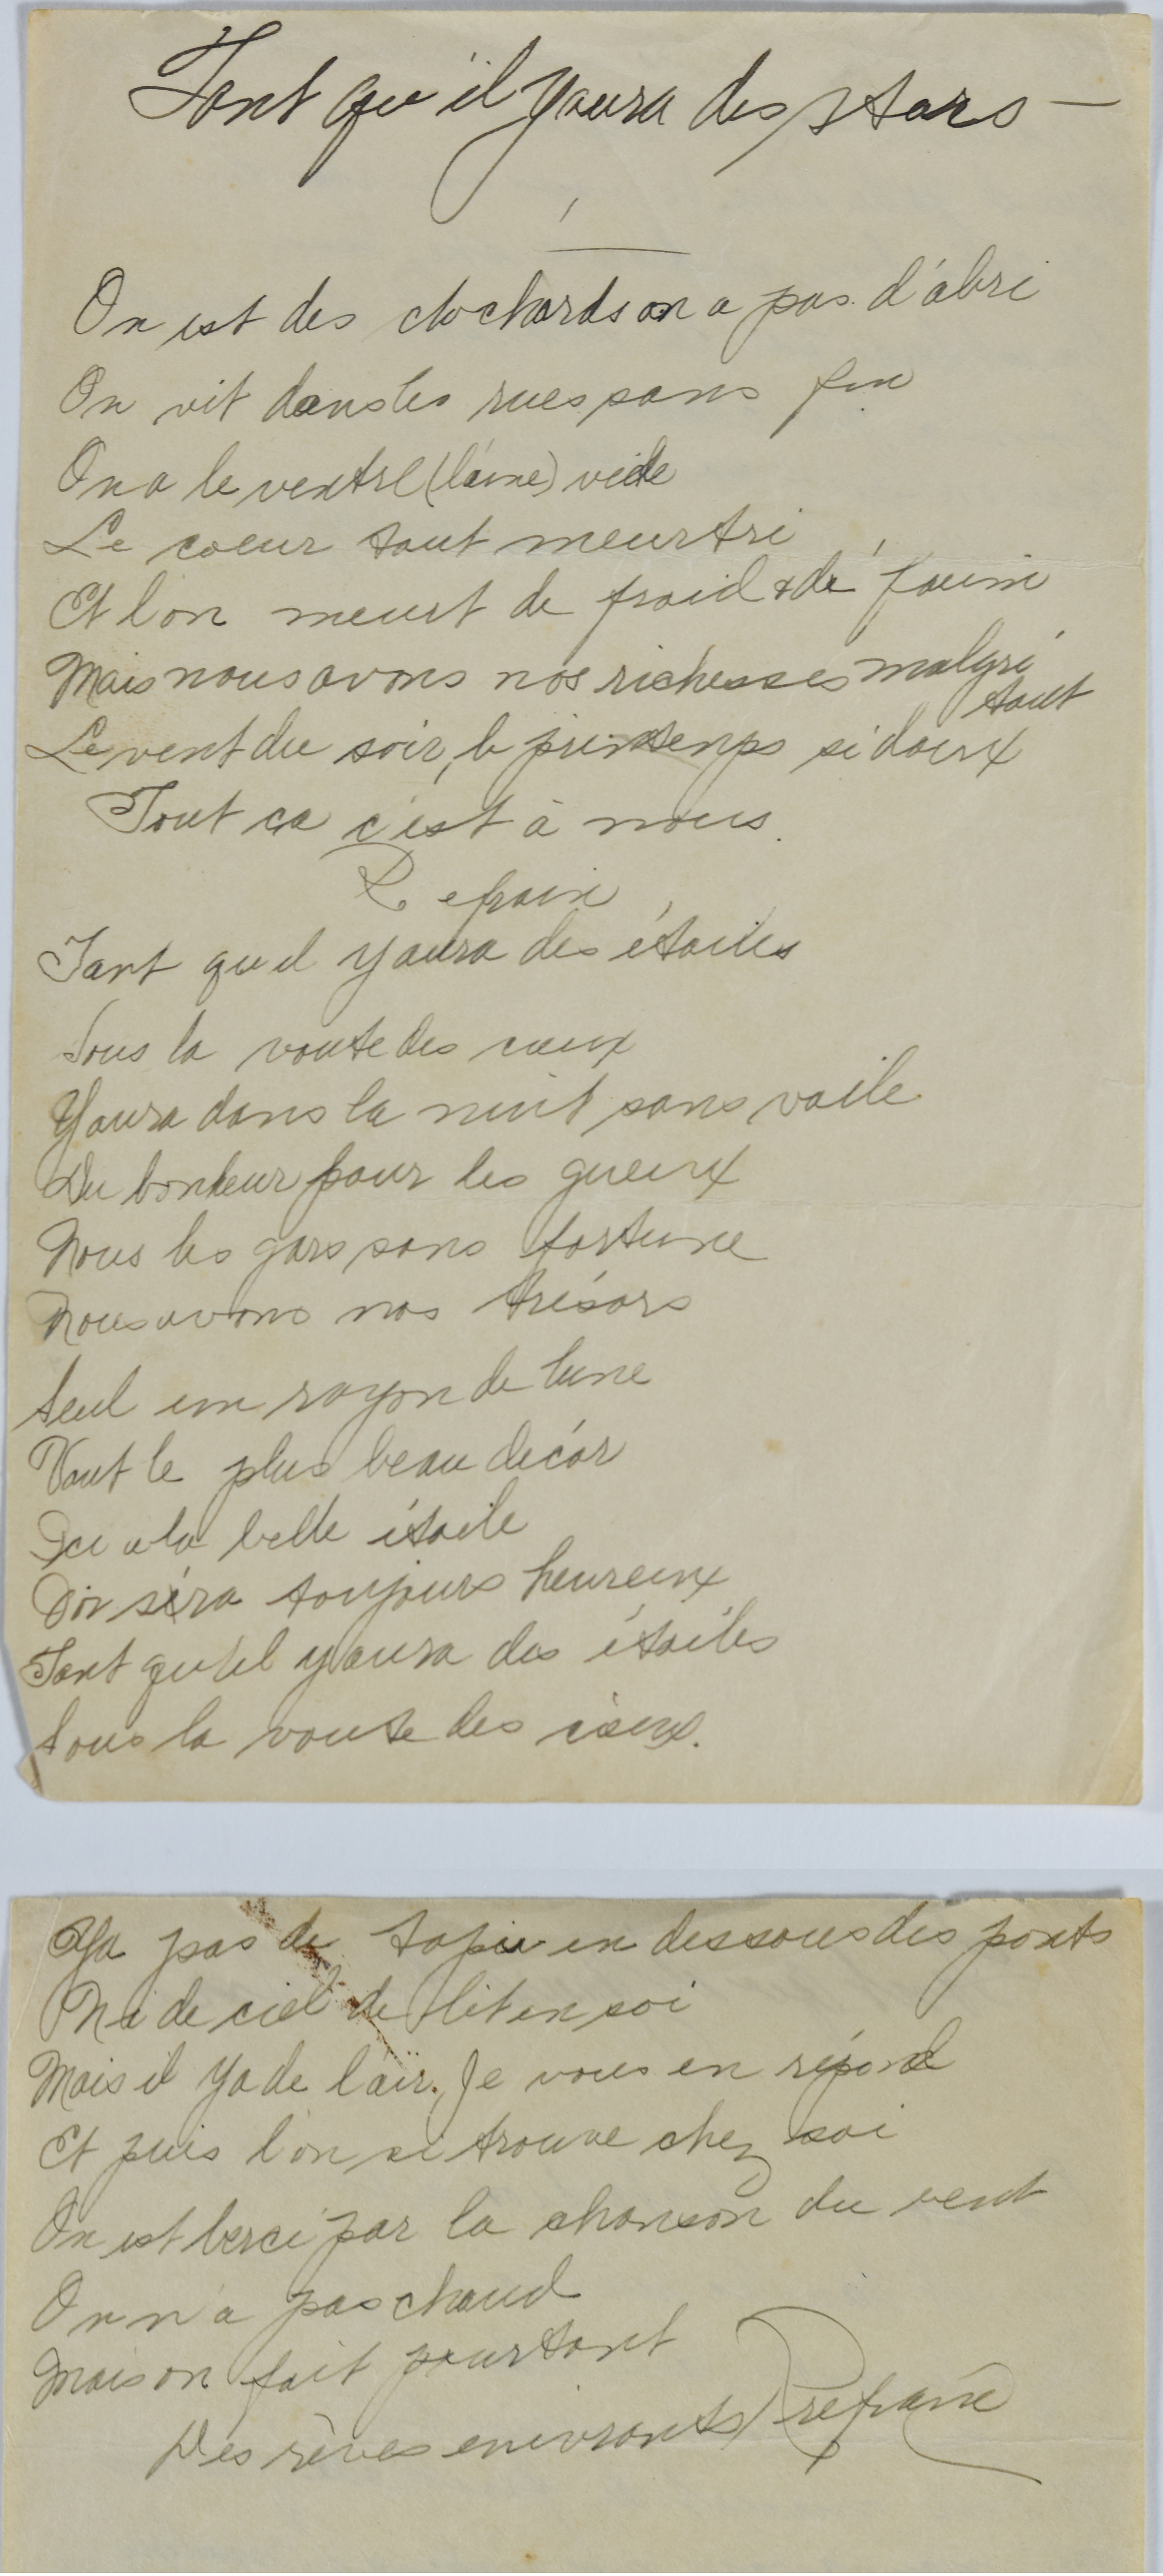 Tant qu'il Yaura des stars —
On est des clochards on a pas d'abri
On vit dans les rues sans fin
On a le ventre (l'âme) vide
Le coeur tout meurtri
Et l'on meurt de froid & de faim
Mais nous avons nos richesses malgré tout
Le vent du soir, le printemps si doux
Tout ca c'est à nous.
Refrain
Tant qu'il yaura des étoiles
Sous la voute des cieux
Yaura dans la nuit sans voile
Du bonheur pour les gueux
Nous les gars sans fortune
Nous avons nos trésors
Seul un rayon de lune
Vaut le plus beau décor
Ici a la belle étoile
On séra toujours heureux
Tant qu'il yaura des étoiles
Sous la voute des cieux.
Ya pas de tapis en dessous des ponts
Ni de ciel de lit en soi
Mais il Ya de l'air. Je vous en répond
Et puis l'on se trouve chez soi
On est bercé par la chanson du vent
On n'a pas chaud
Mais on fait pourtant
Des rêves enivrants / Refrain